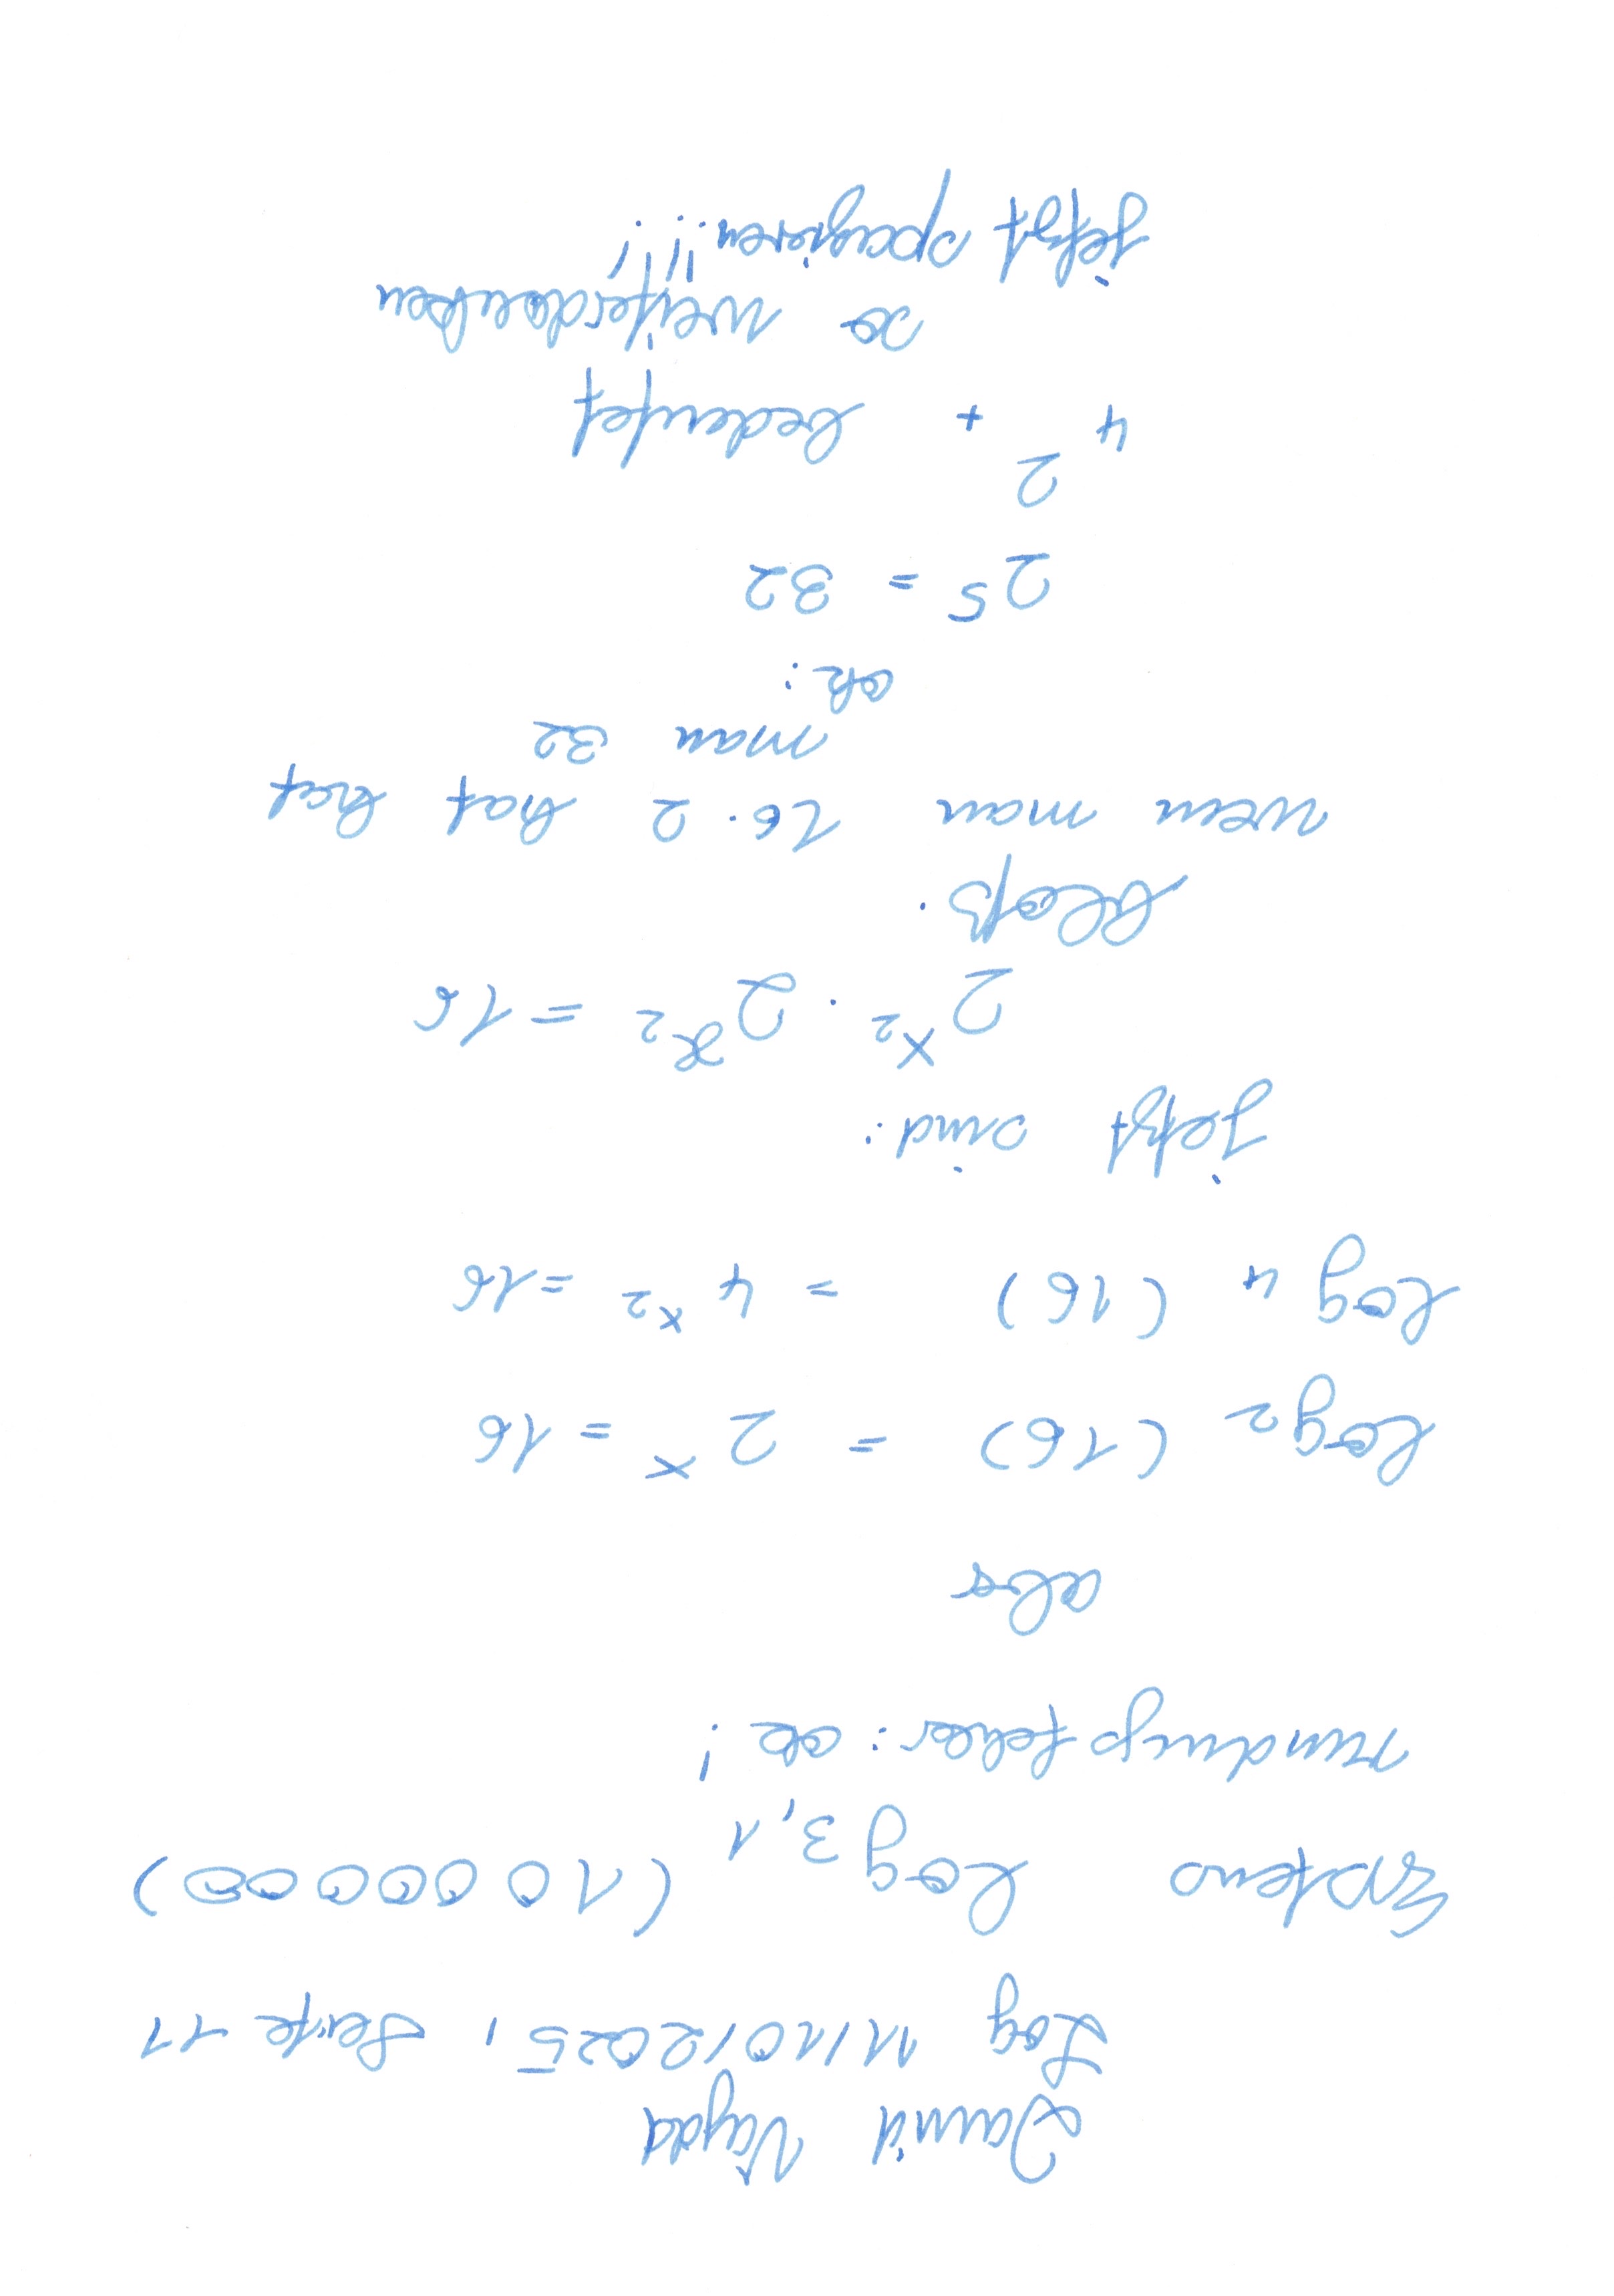 Danil Vigda
Log 11/10/2025, Seite 11
Erstens Log 3,1 (10 000000)
rundung fehler: ok!
also
Log 2 (16) = 2 x = 16
Log 4 (16) = 4 x2 = 16
Jetzt sind:
2 x2 · 2 x2 = 16
bloß.
wenn man 16·2 hat hat
man 32
ok:
2 5 = 32
4 2 + bedeutet
so weiterdenken
jetzt pausieren!!!